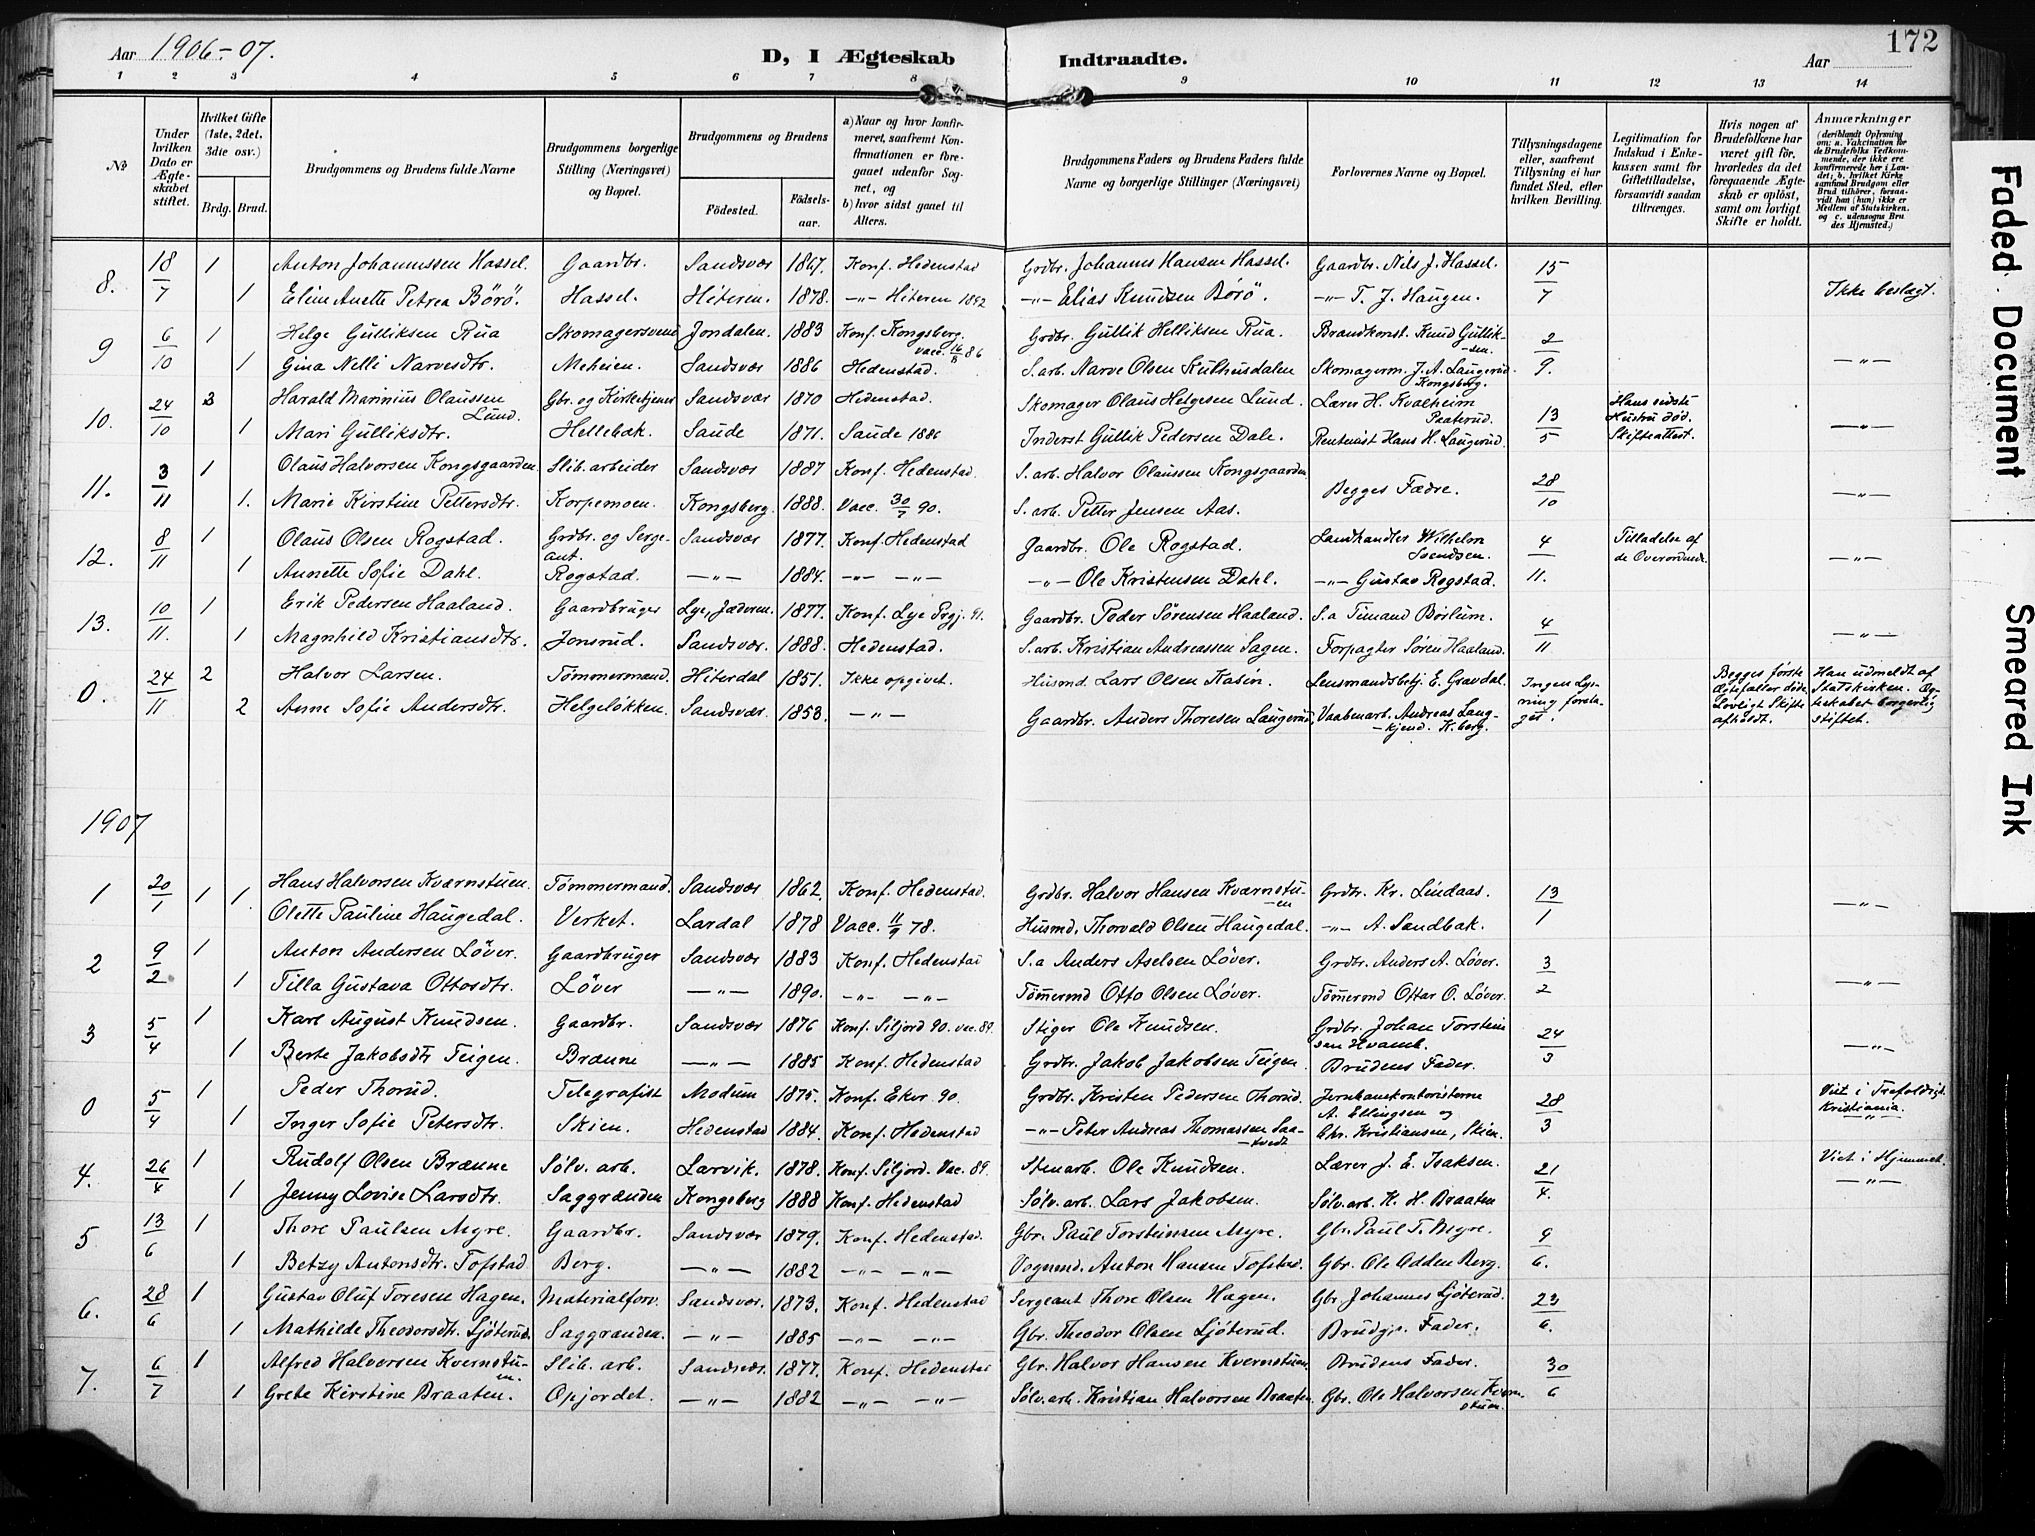 Aar 1906-07.
D, I Ægteskab Indtraadte.
Aar
172
1 2 3 4 5 6 7 8 9 10 11 12 13 14
№
Under hvilken Dato er Ægteskabet stiftet.
Hvilket Gifte (1ste, 2det, 3die osv.)
Brdg. Brud.
Brudgommens og Brudens fulde Navne
Brudgommens borgerlige Stilling (Næringsvei) og Bopæl.
Brudgommens og Brudens
Fødested.
Fødselsaar.
a) Naar og hvor konfirmeret, saafremt Konfirmationen er foregaaet udenfor Sognet, og
b) hvor sidst gaaet til Alters.
Brudgommens Faders og Brudens Faders fulde Navne og borgerlige Stillinger (Næringsvei)
Forlovernes Navne og Bopæl.
Tillysningsdagene eller, saafremt Tillysning ei har fundet Sted, efter hvilken Bevilling.
Legitimation for Indskud i Enkekassen samt for Giftetilladelse, forsaavidt saadan tiltrænges.
Hvis nogen af Brudefolkene har været gift før, hvorledes da det foregaaende Ægteskab er opløst, samt om lovligt Skifte er holdt.
Anmærkninger (deriblandt Oplysning om: a. Vakcination for de Brudefolks Vedkommende, der ikke ere konfirmerede her i Landet; b. hvilket Kirkesamfund Brudgom eller Brud tilhører, forsaavidt han (hun) ikke er Medlem af Statskirken. og c. udensogns Brudes Hjemsted.)
8. 18/7 1 Anton Johannssen Hassel. Gaardbr. Sandsvær 1867. Konf. Hedenstad Grdbr. Johannes Hansen Hassel. Gaardbr. Nils J. Hassel. 15/7
1 Eline Anette Petrea Börö. Hassel. Hiteren. 1878. -"- Hiteren 1892 -"- Elias Knudsen Börö. -"- T. J. Haugen. Ikke beslægt.
9 6/10 1 Helge Gulliksen Rua Skomagersvend Jondalen. 1883 Konf. Kongsberg. vacc. 16/8 86 Grdbr. Gullik Helliksen Rua. Brandkonst. Knud Gulliksen. 2/9.
1 Gina Nelli Narvesdtr. Meheien. Sandsvær 1886 Hedenstad. S.arb. Narve Olsen Kulhusdalen Skomagerm. J. A. Laugerud. Kongsberg. -"-
10. 24/10 2 Harald Marinius Olaussen Lund. Gbr. og Kirketjener Sandsvær 1870 Hedenstad. Skomager Olaus Helgesen Lund. Lærer H. Kvalheim Paaterud. 13/5 Hans sidste Hustru død. Skifteattest.
1 Mari Gulliksdtr. Hellebæk. Saude 1871. Saude 1886 Inderst Gullik Pedersen Dale. Rentenist Hans H. Laugerud. -"-
11. 3/11 1 Olaus Halvorsen Kongsgaarden. Slib. arbeider Sandsvær 1887 Konf. Hedenstad. S. arb. Halvor Olaussen Kongsgaarden Begges Fædre. 28/10
1. Marie Kirstine Pettersdtr. Korpemoen. Kongsberg. 1888. Vacc. 30/7 90. S. arb. Petter Jensen Aas. -"-
12. 8/11 1 Olaus Olsen Rogstad. Grdbr. og Sergeant. Sandsvær 1877. Konf. Hedenstad Gaardbr. Ole Rogstad. Landhandler Wilhelm Svendsen. 4/11. Tilladelse af de Overordnede.
1 Annette Sofie Dahl. Rogstad. -"- 1884. -"- -"- -"- Ole Kristensen Dahl. -"- Gustav Rogstad. -"-
13. 10/11. 1 Erik Pedersen Haaland. Gaardbruger Lye, Jæderen. 1877. Konf. Lye Prgj. 91. Gaardbr. Peder Sörensen Haaland. S.a Timand Börlum. 4/11
1 Magnhild Kristiansdtr. Jonsrud. Sandsvær. 1888. Hedenstad. S.arb. Kristian Andreassen Sagen. Forpagter Sören Haaland. -"-
0. 24/11 2 Halvor Larsen. Tömmermand. Hiterdal 1851. Ikke opgivet. Husmd. Lars Olsen Kasin. Lensmandsbetj. E. Gravdal. Ingen Lysning foretaget. Begges første Ægtefæller døde. Lovligt Skifte afholdt. Han udmeldt af Statskirken. Ægteskabet borgerlig stiftet.
2 Anne Sofie Andersdtr. Helgelökken. Sandsvær. 1853. -"- Gaardbr. Anders Thoresen Laugerud. Vaabenarb. Andreas Langkjend. K.berg.
1907
1 20/1 1 1 Hans Halvorsen Kværnstuen. Tömmermand. Sandsvær 1862. Konf. Hedenstad. Grdbr. Halvor Hansen Kværnstuen Grdbr. Kr. Lindaas. 13/1
Olette Pauline Haugedal. Verket. Lardal 1878 Vacc. 11/9 78. Husmd. Thorvald Olsen Haugedal. -"- A. Sandbæk. -"-
2 9/2 1 Anton Andersen Löver. Gaardbruger Sandsvær 1883 Konf. Hedenstad S.a Anders Aselsen Löver. Grdbr. Anders A. Löver. 3/2
1 Tilla Gustava Ottosdtr. Löver -"- 1890. -"- -"- Tömmermd Otto Olsen Löver. Tömmermd Ottar O. Löver. -"-
3 5/4 1 Karl August Knudsen. Gaardbr. Sandsvær 1876 Konf. Siljord 90. vac. 89. Stiger Ole Knudsen. Grdbr. Johan Torsteinsen Hvamb. 24/3
1 Berte Jakobsdtr Teigen. Brænne -"- 1885 Konf. Hedenstad Grdbr. Jakob Jakobsen Teigen. Brudens Fader. -"-
0 5/4 1 Peder Thorud. Telegrafist Modum 1875. Konf. Eker 90. Grdbr. Kristen Pedersen Thorud. Jernbanekontoristerne A. Ellingsen og Chr. Kristiansen, Skien. 28/3 Viet i Trefoldigh. Kristiania.
1 Inger Sofie Petersdtr. Skien. Hedenstad 1884. Konf. Hedenstad -"- Peter Andreas Thomassen Saatvedt -"-
4. 26/4 1 Rudolf Olsen Brænne Sölv. arb. Larvik. 1878. Konf. Siljord. Vac. 89. Stenarb. Ole Knudsen. Lærer J. E. Isaksen. 21/4. Viet i Hjemmet.
1 Jenny Lovise Larsdtr. Saggrænden Kongsberg 1888 Konf. Hedenstad Sölv. arb. Lars Jakobsen. Sölv. arb. K. H. Braaten -"-
5 13/6 1 Thore Paulsen Myre. Gaardbr. Sandsvær 1879. Konf. Hedenstad. Gbr. Paul Torsteinsen Myre. Gbr. Paul T. Myre. 9/6.
1 Betzy Antonsdtr. Tofstad Berg. -"- 1882 -"- -"- Vognmd. Anton Hansen Tofstad. Gbr. Ole Odden Berg.
6. 28/6 1 Gustav Oluf Toresen Hagen. Materialforv. Sandsvær. 1873. Konf. Hedenstad Sergeant Thore Olsen Hagen. Gbr. Johannes Sjöterud. 23/6.
1 Mathilde Theodorsdtr. Sjöterud. Saggrænden. -"- 1885 -"- -"- Gbr. Theodor Olsen Sjöterud. Brudgs. Fader.
7. 6/7 1 Alfred Halvorsen Kvernstuen. Slib. arb. Sandsvær. 1877. Konf. Hedenstad Gbr. Halvor Hansen Kvernstuen Brudens Fader. 30/6
1 Grete Kirstine Braaten. Opjordet. -"- 1882 -"- -"- Sölv. arb. Kristian Halvorsen Braaten. Gbr. Ole Halvorsen Kvernstuen.
Faded Document
Smeared Ink